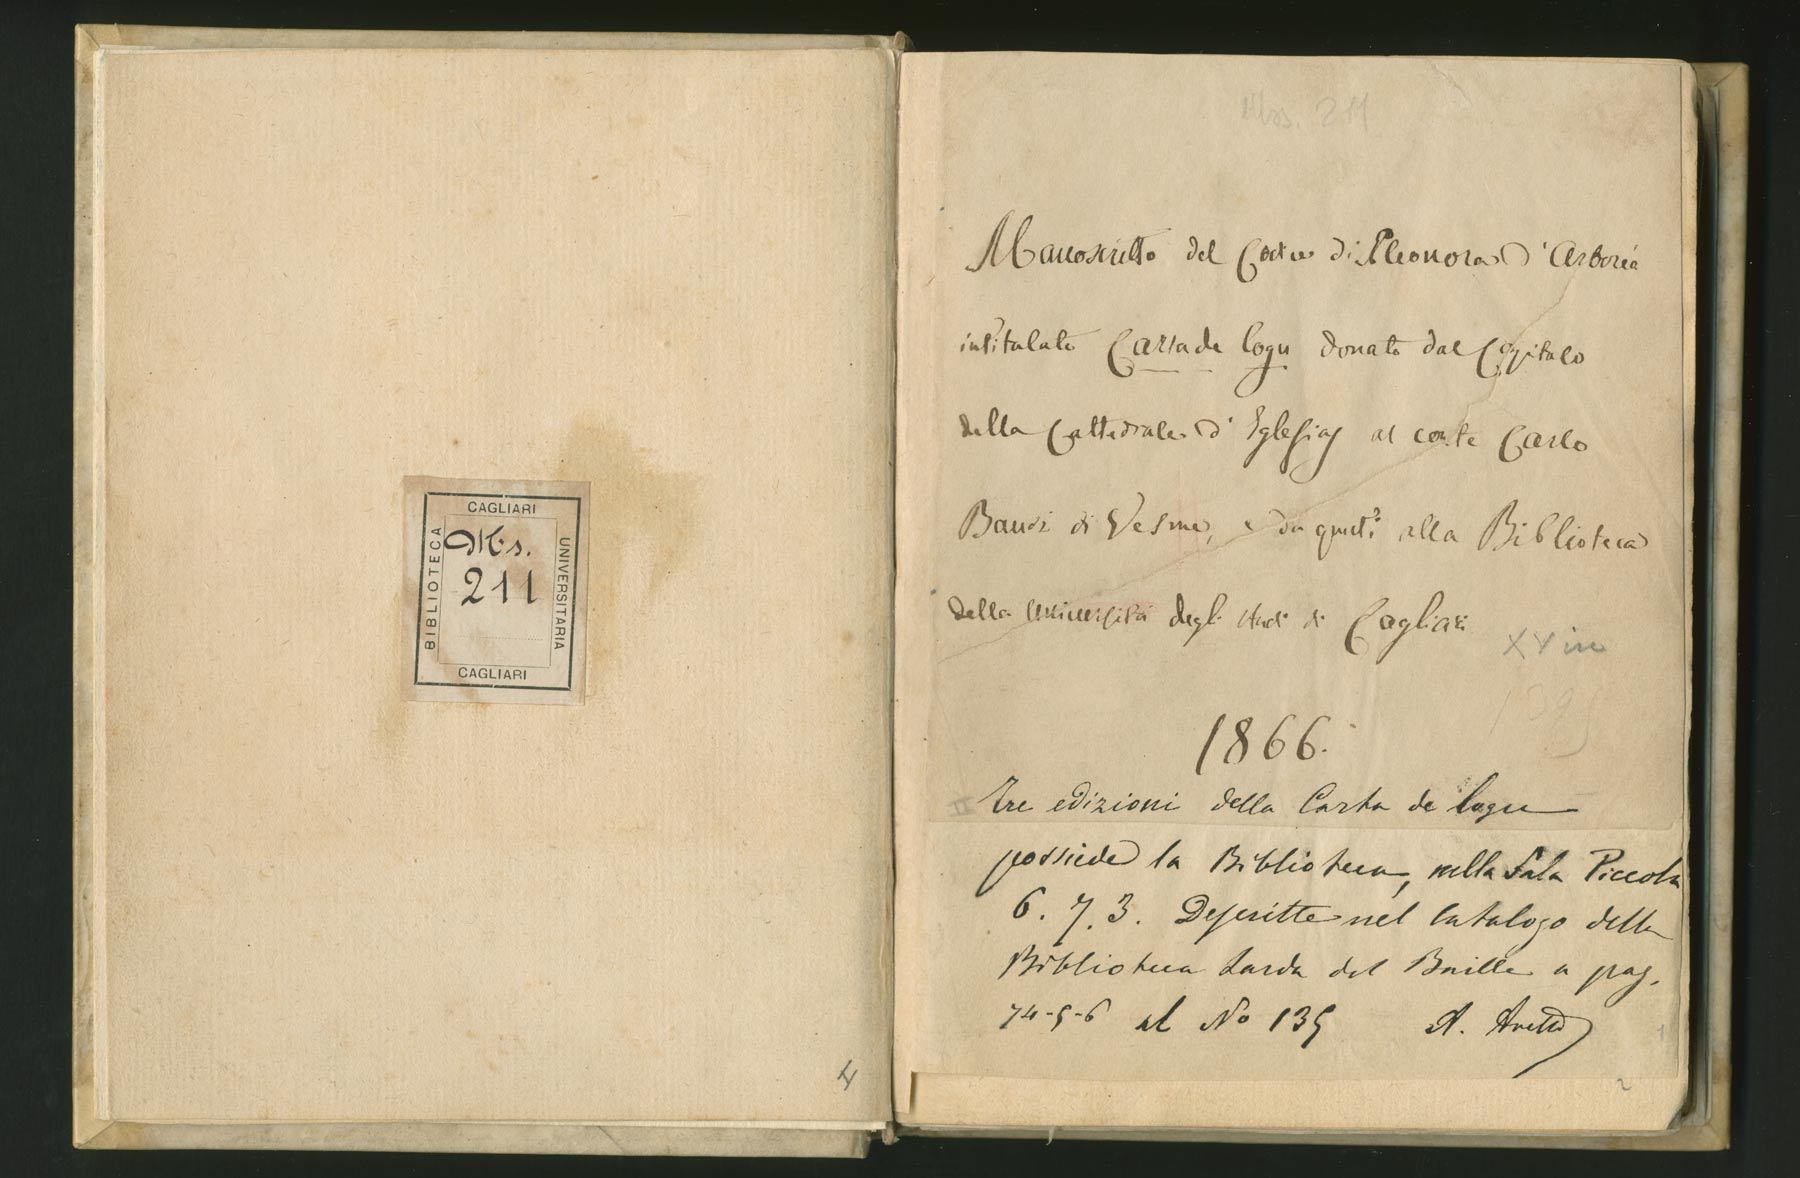 CAGLIARI
BIBLIOTECA
Ms.
211
UNIVERSITARIA
CAGLIARI
4
Mss. 211
Manoscritto del Codice di Eleonora d'Arborea
intitolato Carta de logu donato dal Capitolo
della Cattedrale d'Iglesias al conte Carlo
Baudi di Vesme, e da questi alla Biblioteca
della Università degli studi di Cagliari
XV in
1866.
II
Tre edizioni della Carta de logu
possiede la Biblioteca, nella Sala Piccola
6. 7. 3. Descritte nel Catalogo della
Biblioteca Sarda del Baille a pag.
74-5-6 al No 135 A.
1
2